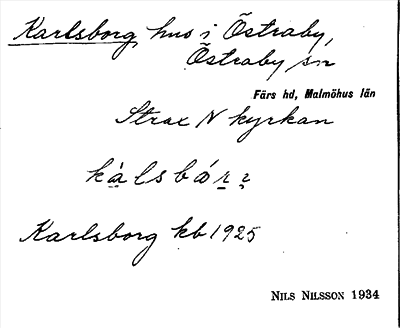 Karlsborg hus i Östraby,
Östraby sn
Färs hd, Malmöhus län
Strax N kyrkan
Karlsborg kb 1925
NILS NILSSON 1934